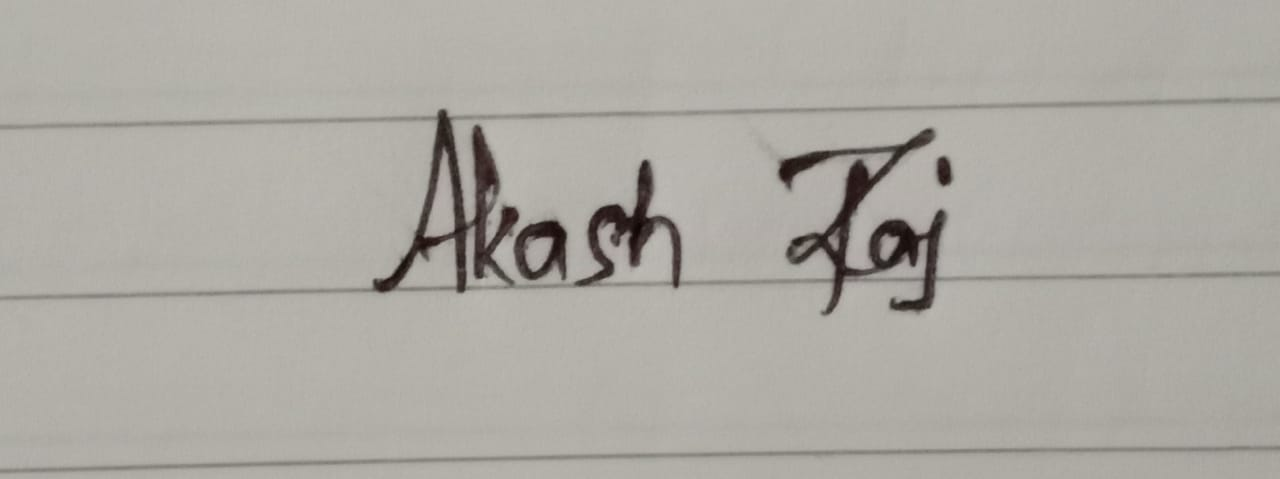 Akash Raj